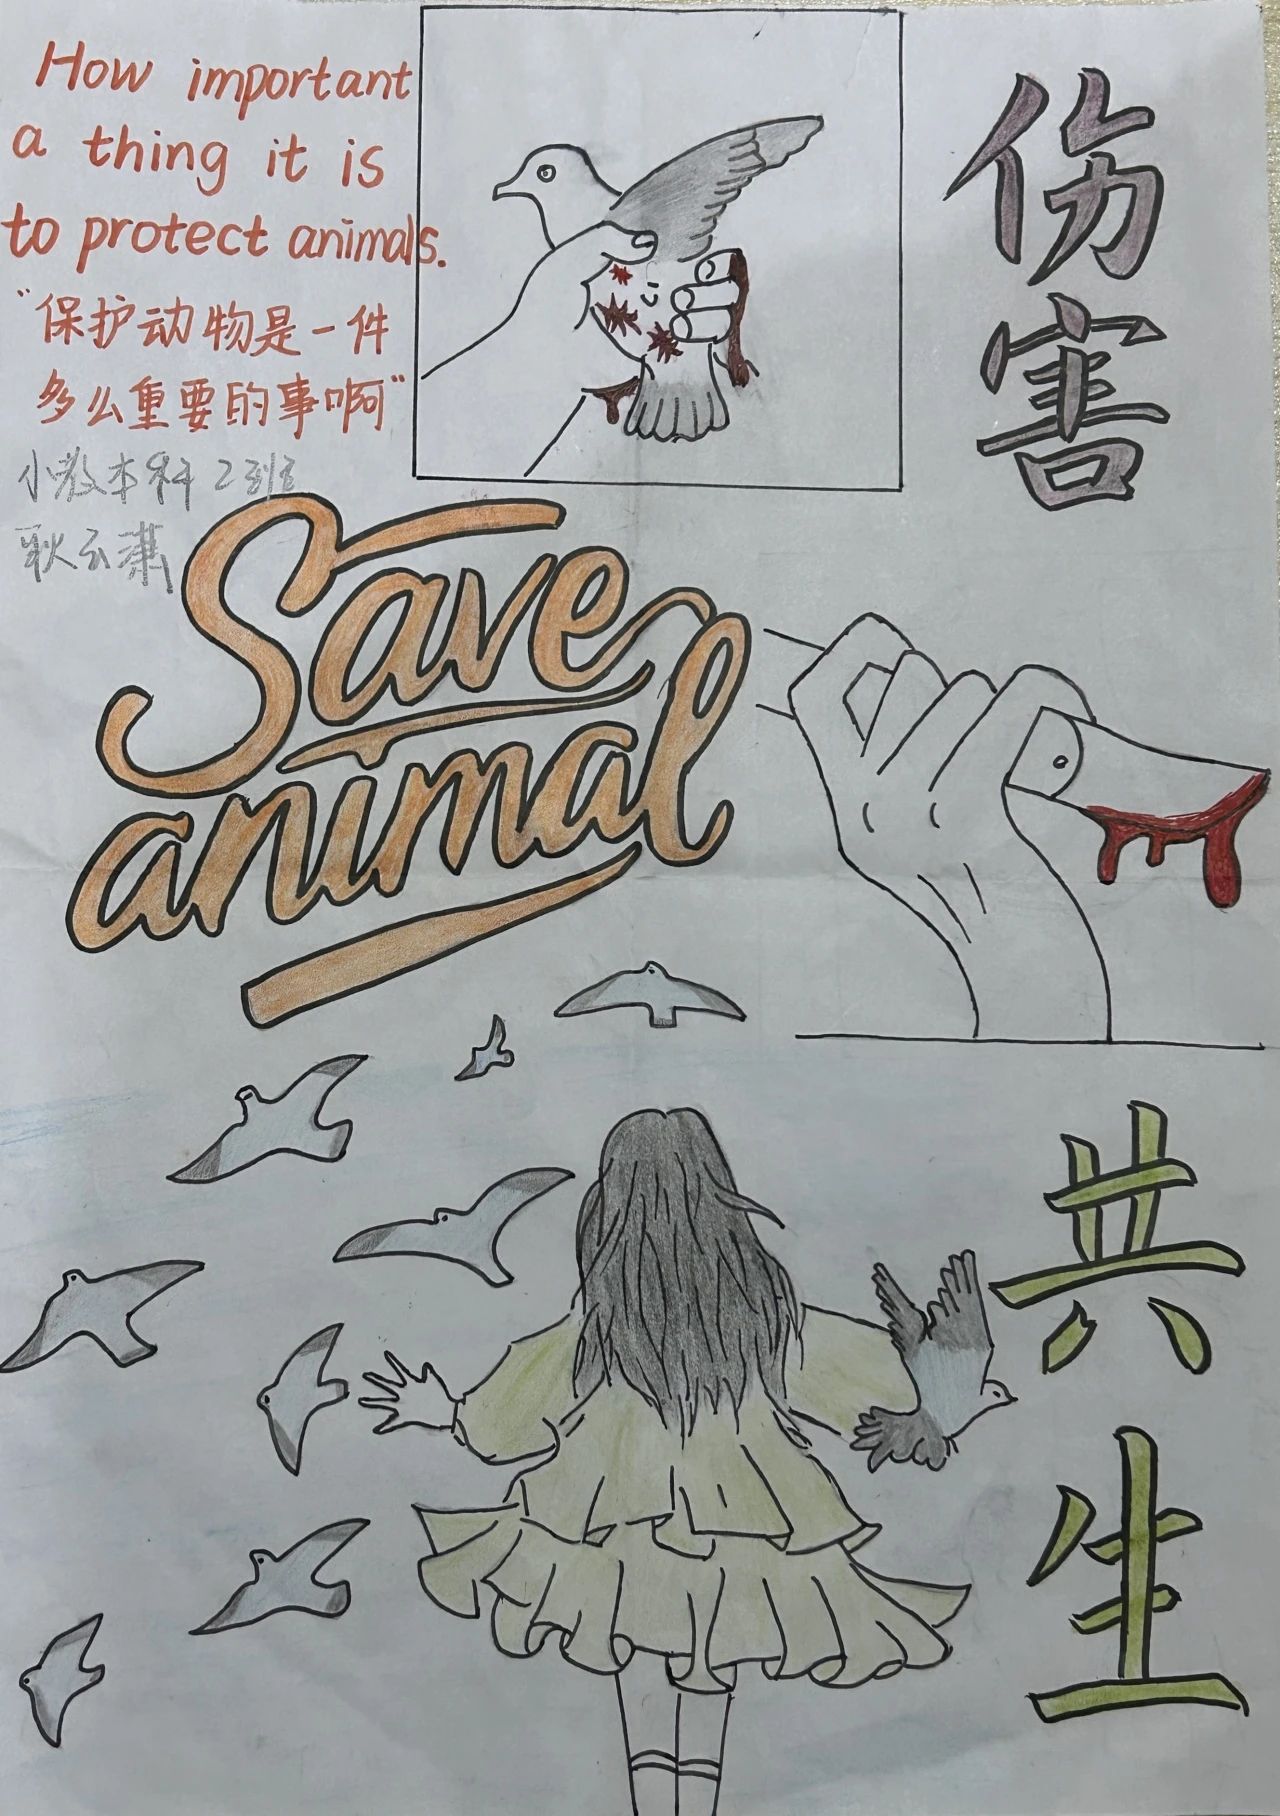 How important
a thing it is
to protect animals.
"保护动物是一件
多么重要的事啊"
小教本科2班
耿云潇
伤害
Save
animal
共生